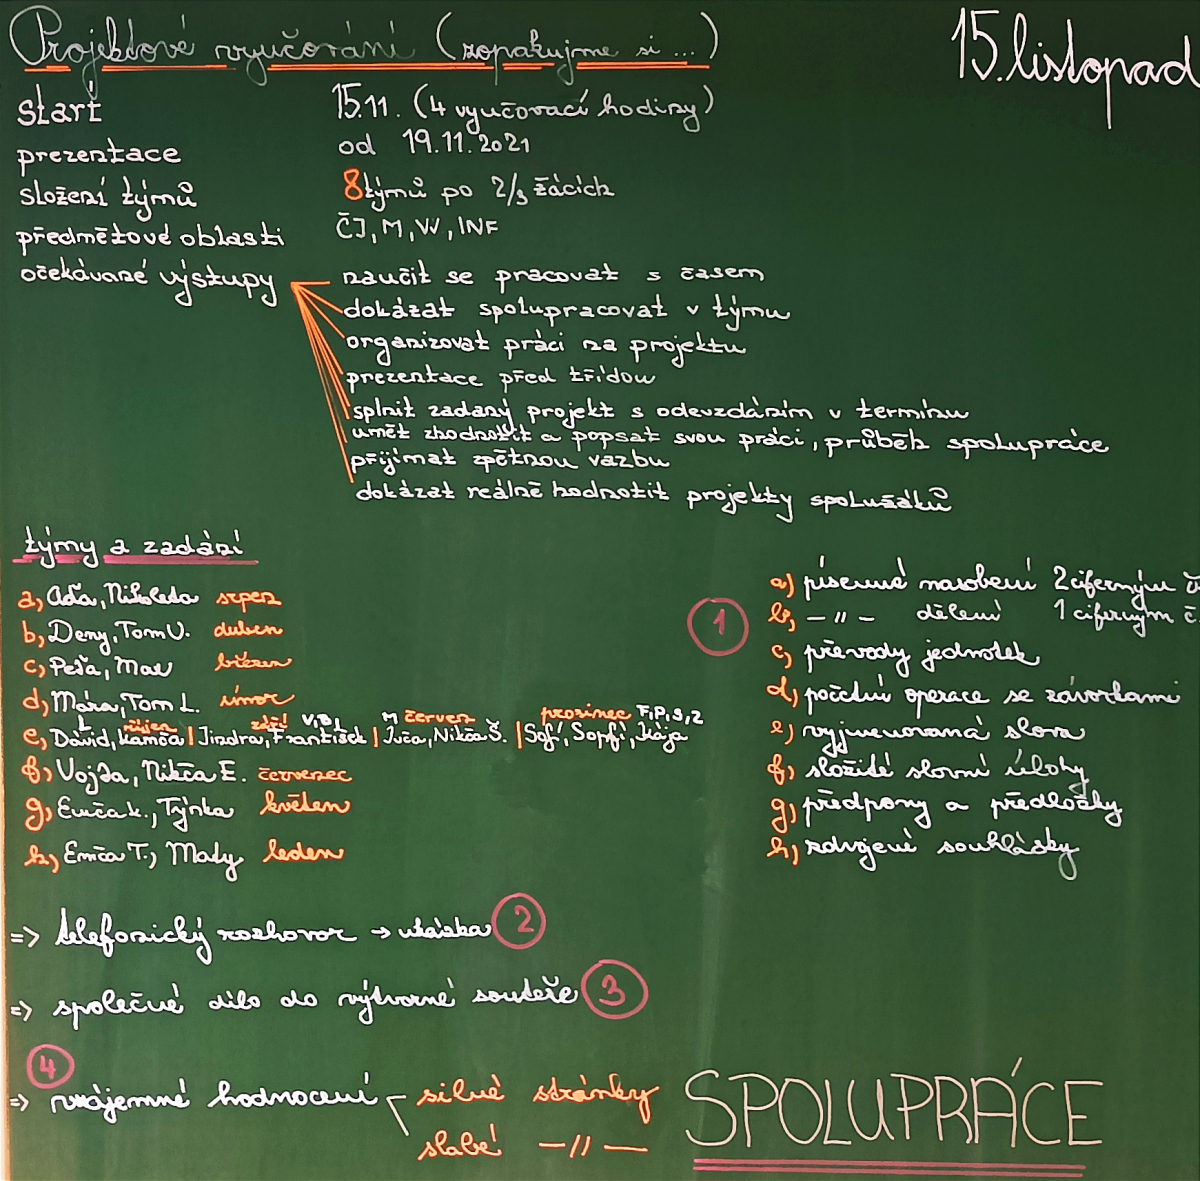 Projektové vyučování (zopakujme si ...)
15. listopad
start 15.11. (4 vyučovací hodiny)
prezentace od 19.11.2021
složení týmů 8 týmů po 2/3 žácích
předmětové oblasti ČJ, M, VV, INF
očekávané výstupy naučit se pracovat s časem
dokázat spolupracovat v týmu
organizovat práci na projektu
prezentace před třídou
splnit zadaný projekt s odevzdáním v termínu
umět zhodnotit a popsat svou práci, průběh spolupráce
přijímat zpětnou vazbu
dokázat reálně hodnotit projekty spolužáků
týmy a zadání
a) Aďa, Nikoleta srpen
b) Deny, Tom V. duben
c) Peťa, Max březen
d) Mára, Tom L. únor
L říjen září V, B, L M červen prosinec F, P, S, Z
e) David, Kamča | Jindra, František | Ivča, Nikča Š. | Sofi, Sopfi, Kája
f) Vojta, Nikča E. červenec
g) Emča K., Týnka květen
h) Emča T., Mady leden
1
a) písemné násobení 2 ciferným č
b) –〃– dělení 1 ciferným č.
c) převody jednotek
d) početní operace se závorkami
e) vyjmenovaná slova
f) složité slovní úlohy
g) předpony a předložky
h) zdvojené souhlásky
=> telefonický rozhovor → ukázka 2
=> společné dílo do výtvarné soutěže 3
4
=> vzájemné hodnocení silné stránky
slabé –〃–
SPOLUPRÁCE